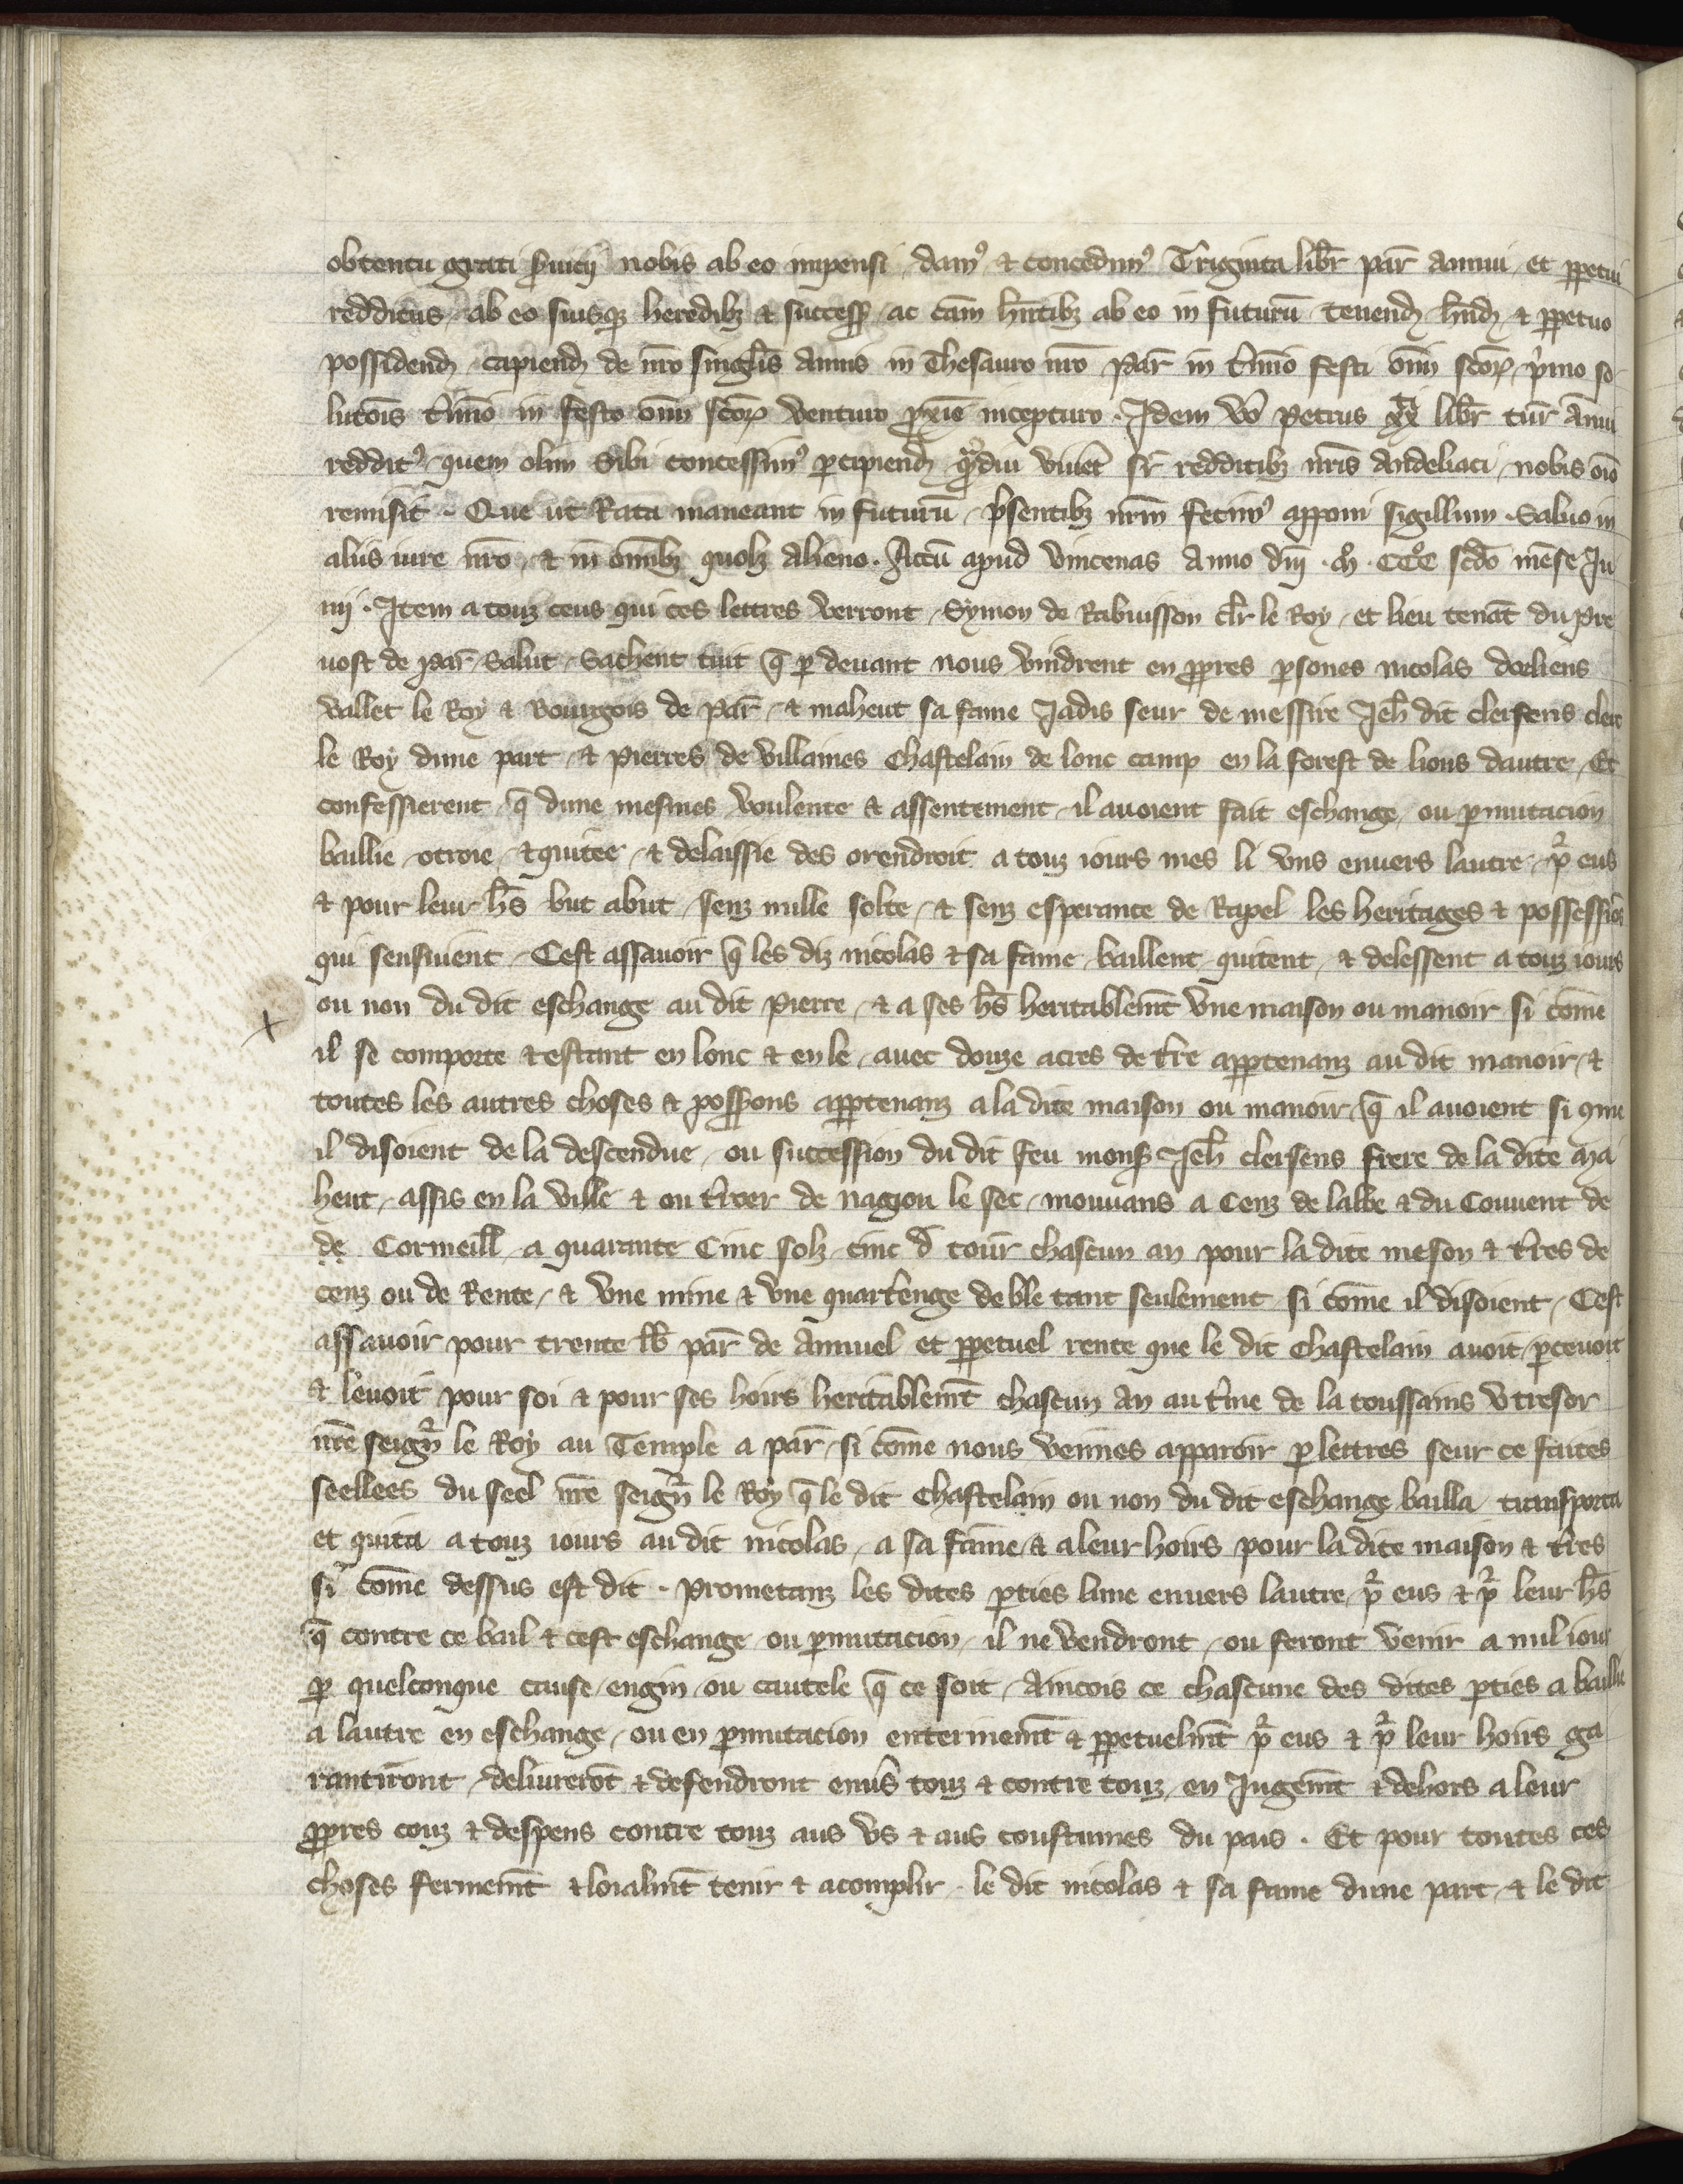 obtentu grati ẜuicij nobis ab eo impensi / damꝰ ⁊ concedimꝰ Triginta libr̄ par̄ annui / et ꝑpetui
redditus / ab eo suisqꝫ heredibꝫ ⁊ success̄ / ac cām hn̄tibꝫ ab eo in futurū tenend̄ hn̄d̄ ⁊ ꝑpetuo
possidend̄ / capiend̄ de nr̄o singl̄is annis in Thesauro nr̄o par̄ in t̄mīo festi om̄i sc̄oꝝ / p̄mo so
lutōis t̄mīo in festo om̄i sc̄oꝝ venturo ꝓxīe incepturo . Idem vō Petrus xxᵗⁱ libr̄ tur̄ annui
redditꝰ / quem olim sibi concessimꝰ ꝑcipiend̄ qᵃmdiu viuet sr̄ redditibꝫ nr̄is Andeliaci / nobis oīo
remisit . Que ut Rata maneant in futurū / p̄sentibꝫ nr̄m fecimꝰ apponi sigillum . Saluo in
aliis iure nr̄o / ⁊ in om̄ibꝫ quolꝫ alieno . Actū apud vincenas Anno dn̄i . mͦ . CCCͦ sc̄do mēse Iu
nij . Item a touz ceus qui ces lettres verront / Symon de Rabuisson cler̄ le Roy / et lieu tenāt du pre
uost de Par̄ / Salut / Sachent tuit q̄ ꝑ deuant nous vindrent en ꝓpres ꝑsones nicolas dorliens
vallet le Roy ⁊ Bourgois de Par̄ / ⁊ maheut sa fame Jadis seur de messire Jeh̄ dit clersens clerc
le Roy dune part / ⁊ Pierres de villaines Chastelain de lonc camp en la forest de lions dautre / Et
confessierent / q̄ dune mesmes voulente ⁊ assentement / il auoient fait eschange / ou ꝑmutacion
baillie / otroie / ⁊ quitee / ⁊ delaissie des orendroit a touz iours mes li vns enuers lautre / pͬ eus
⁊ pour leur h̄s but abut / senz nulle solte / ⁊ senz esperance de Rapel les heritages ⁊ possessiōs
qui sensiuent / Cest assauoir q̄ les diz nicolas ⁊ sa fame / baillent quitent / ⁊ delessent a touz iours
ou non du dit eschange au dit Pierre / ⁊ a ses h̄s heritablem̄t vne maison ou manoir si cōme
il se comporte ⁊ estant en lonc ⁊ en le / auec douze acres de t̄re aꝑtenanz au dit manoir / ⁊
toutes les autres choses ⁊ poss̄ions aꝑtenanz a la dite maison ou manoir / q̄ il auoient si ꝯme
il disoient de la descendue / ou succession du dit feu mons̄ Jeh̄ clersens frere de la dite ma
heut / assis en la ville ⁊ ou t̄roer de nagiou le sec / mouuans a Cenz de labbe ⁊ du Couuent de
de Cormeill̄ / a quarante Cinc solz / cinc d̄ tour̄ chascun an pour la dite meson ⁊ t̄res de
cenz ou de Rente / ⁊ vne mine ⁊ vne quart̄enge de ble tant seulement si cōme il disoient / Cest
assauoir pour trente lb̄ par̄ de annuel et ꝑpetuel rente que le dit Chastelain auoit / ꝑceuoit
⁊ leuoit pour soi ⁊ pour ses hoirs heritablem̄t chascun An au t̄me de la toussains v tresor
nr̄e seignͬ le Roy au Temple a par̄ / si cōme nous veimes apparoir ꝑ lettres seur ce faites
seellees du seel nr̄e seignͬ le Roy / q̄ le dit Chastelain ou non du dit eschange bailla / transporta
et quita a touz iours au dit nicolas / a sa fame / ⁊ a leur hoirs pour la dite maison ⁊ t̄res
si cōme dessus est dit . Prometanz les dites ꝑties lune enuers lautre / pͬ eus ⁊ pͬ leur h̄s
q̄ contre ce bail ⁊ cest eschange / ou ꝑmutacion / il ne vendront / ou feront venir a nul iour
ꝑ quelconque cause / engin / ou cautele q̄ ce soit / Aincois ce chascune des dites ꝑties a baillie
a lautre en eschange / ou en ꝑmutacion enterinem̄t ⁊ ꝑpetuelm̄t pͬ eus ⁊ pͬ leur hoirs ga
rantiront / deliurerōt ⁊ defendront enūs touz ⁊ contre touz / en Jugem̄t ⁊ dehors a leur
ꝓpres couz ⁊ despens contre touz aus vs ⁊ aus coustumes du pais . Et pour toutes ces
choses fermem̄t ⁊ loialm̄t tenir ⁊ acomplir / le dit nicolas ⁊ sa fame dune part / ⁊ le dit